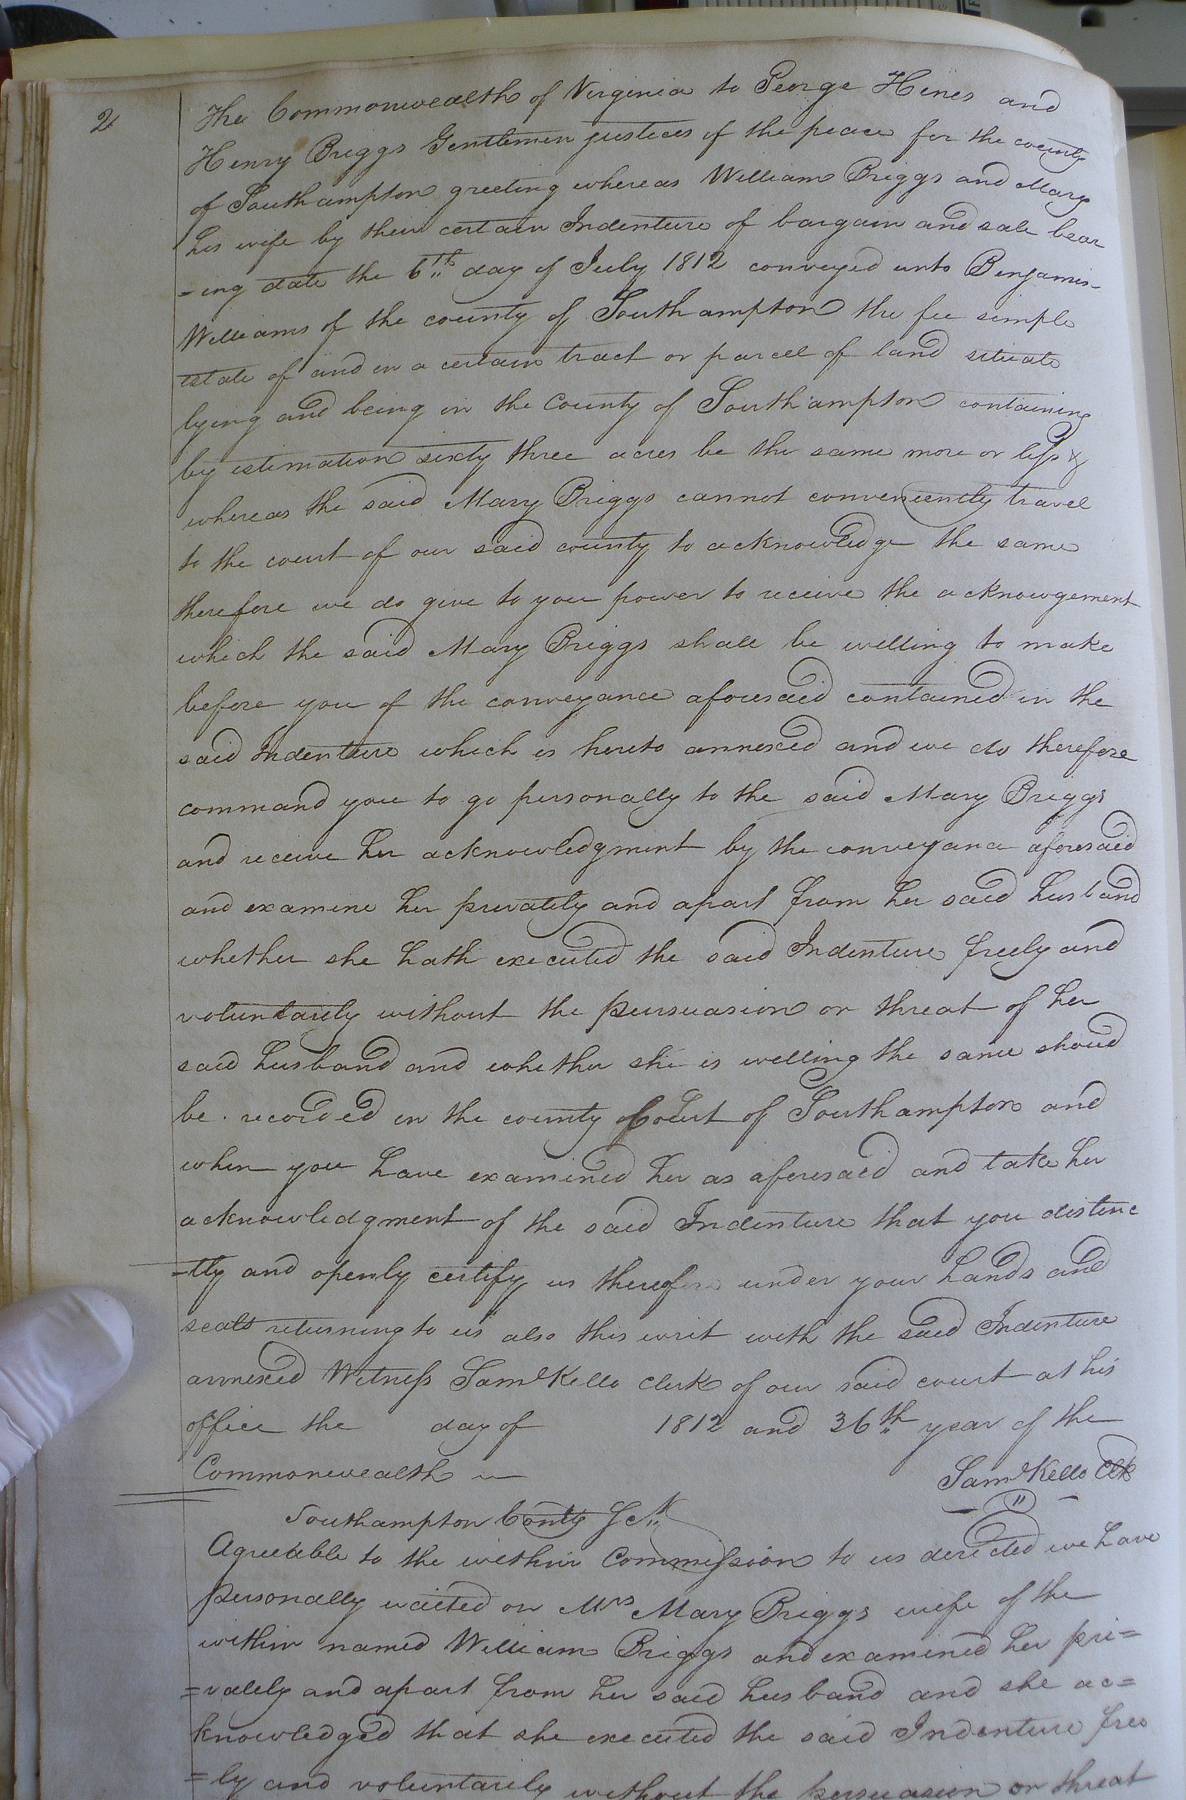 2
The Commonwealth of Virginia to George Hines and
Henry Briggs Gentlemen justices of the peace for the county
of Southampton greeting whereas William Briggs and Mary
his wife by their certain Indenture of bargain and sale bear
-ing date the 6th day of July 1812 conveyed unto Benjamin
Williams of the county of Southampton the fee simple
estate of and in a certain tract or parcel of land situate
lying and being in the County of Southampton containing
by estimation sixty three acres be the same more or less &
whereas the said Mary Briggs cannot conveniently travel
to the court of our said county to acknowledge the same
therefore we do give to you power to receive the acknowgement
which the said Mary Briggs shall be willing to make
before you of the conveyance aforesaid contained in the
said Indenture which is hereto annexed and we do therefore
command you to go personally to the said Mary Briggs
and receive her acknowledgment by the conveyance aforesaid
and examine her privately and apart from her said husband
whether she hath executed the said Indenture freely and
voluntarily without the persuasion or threat of her
said husband and whether she is willing the same shoud
be recorded in the county Court of Southampton and
when you have examined her as aforesaid and take her
acknowledgment of the said Indenture that you distinc
-tly and openly certify us therefore under your hands and
seals returning to us also this writ with the said Indenture
annexed Witness Saml Kello clerk of our said court at his
office the day of 1812 and 36th year of the
Commonwealth
Saml Kello Clk
Southampton Conty Sct
Agreeable to the within Commission to us directed we have
personally waited on Mrs Mary Briggs wife of the
within named William Briggs and examined her pri=
=vately and apart from her said husband and she ac=
knowledged that she executed the said Indenture free
=ly and voluntarily without the persuasion or threat